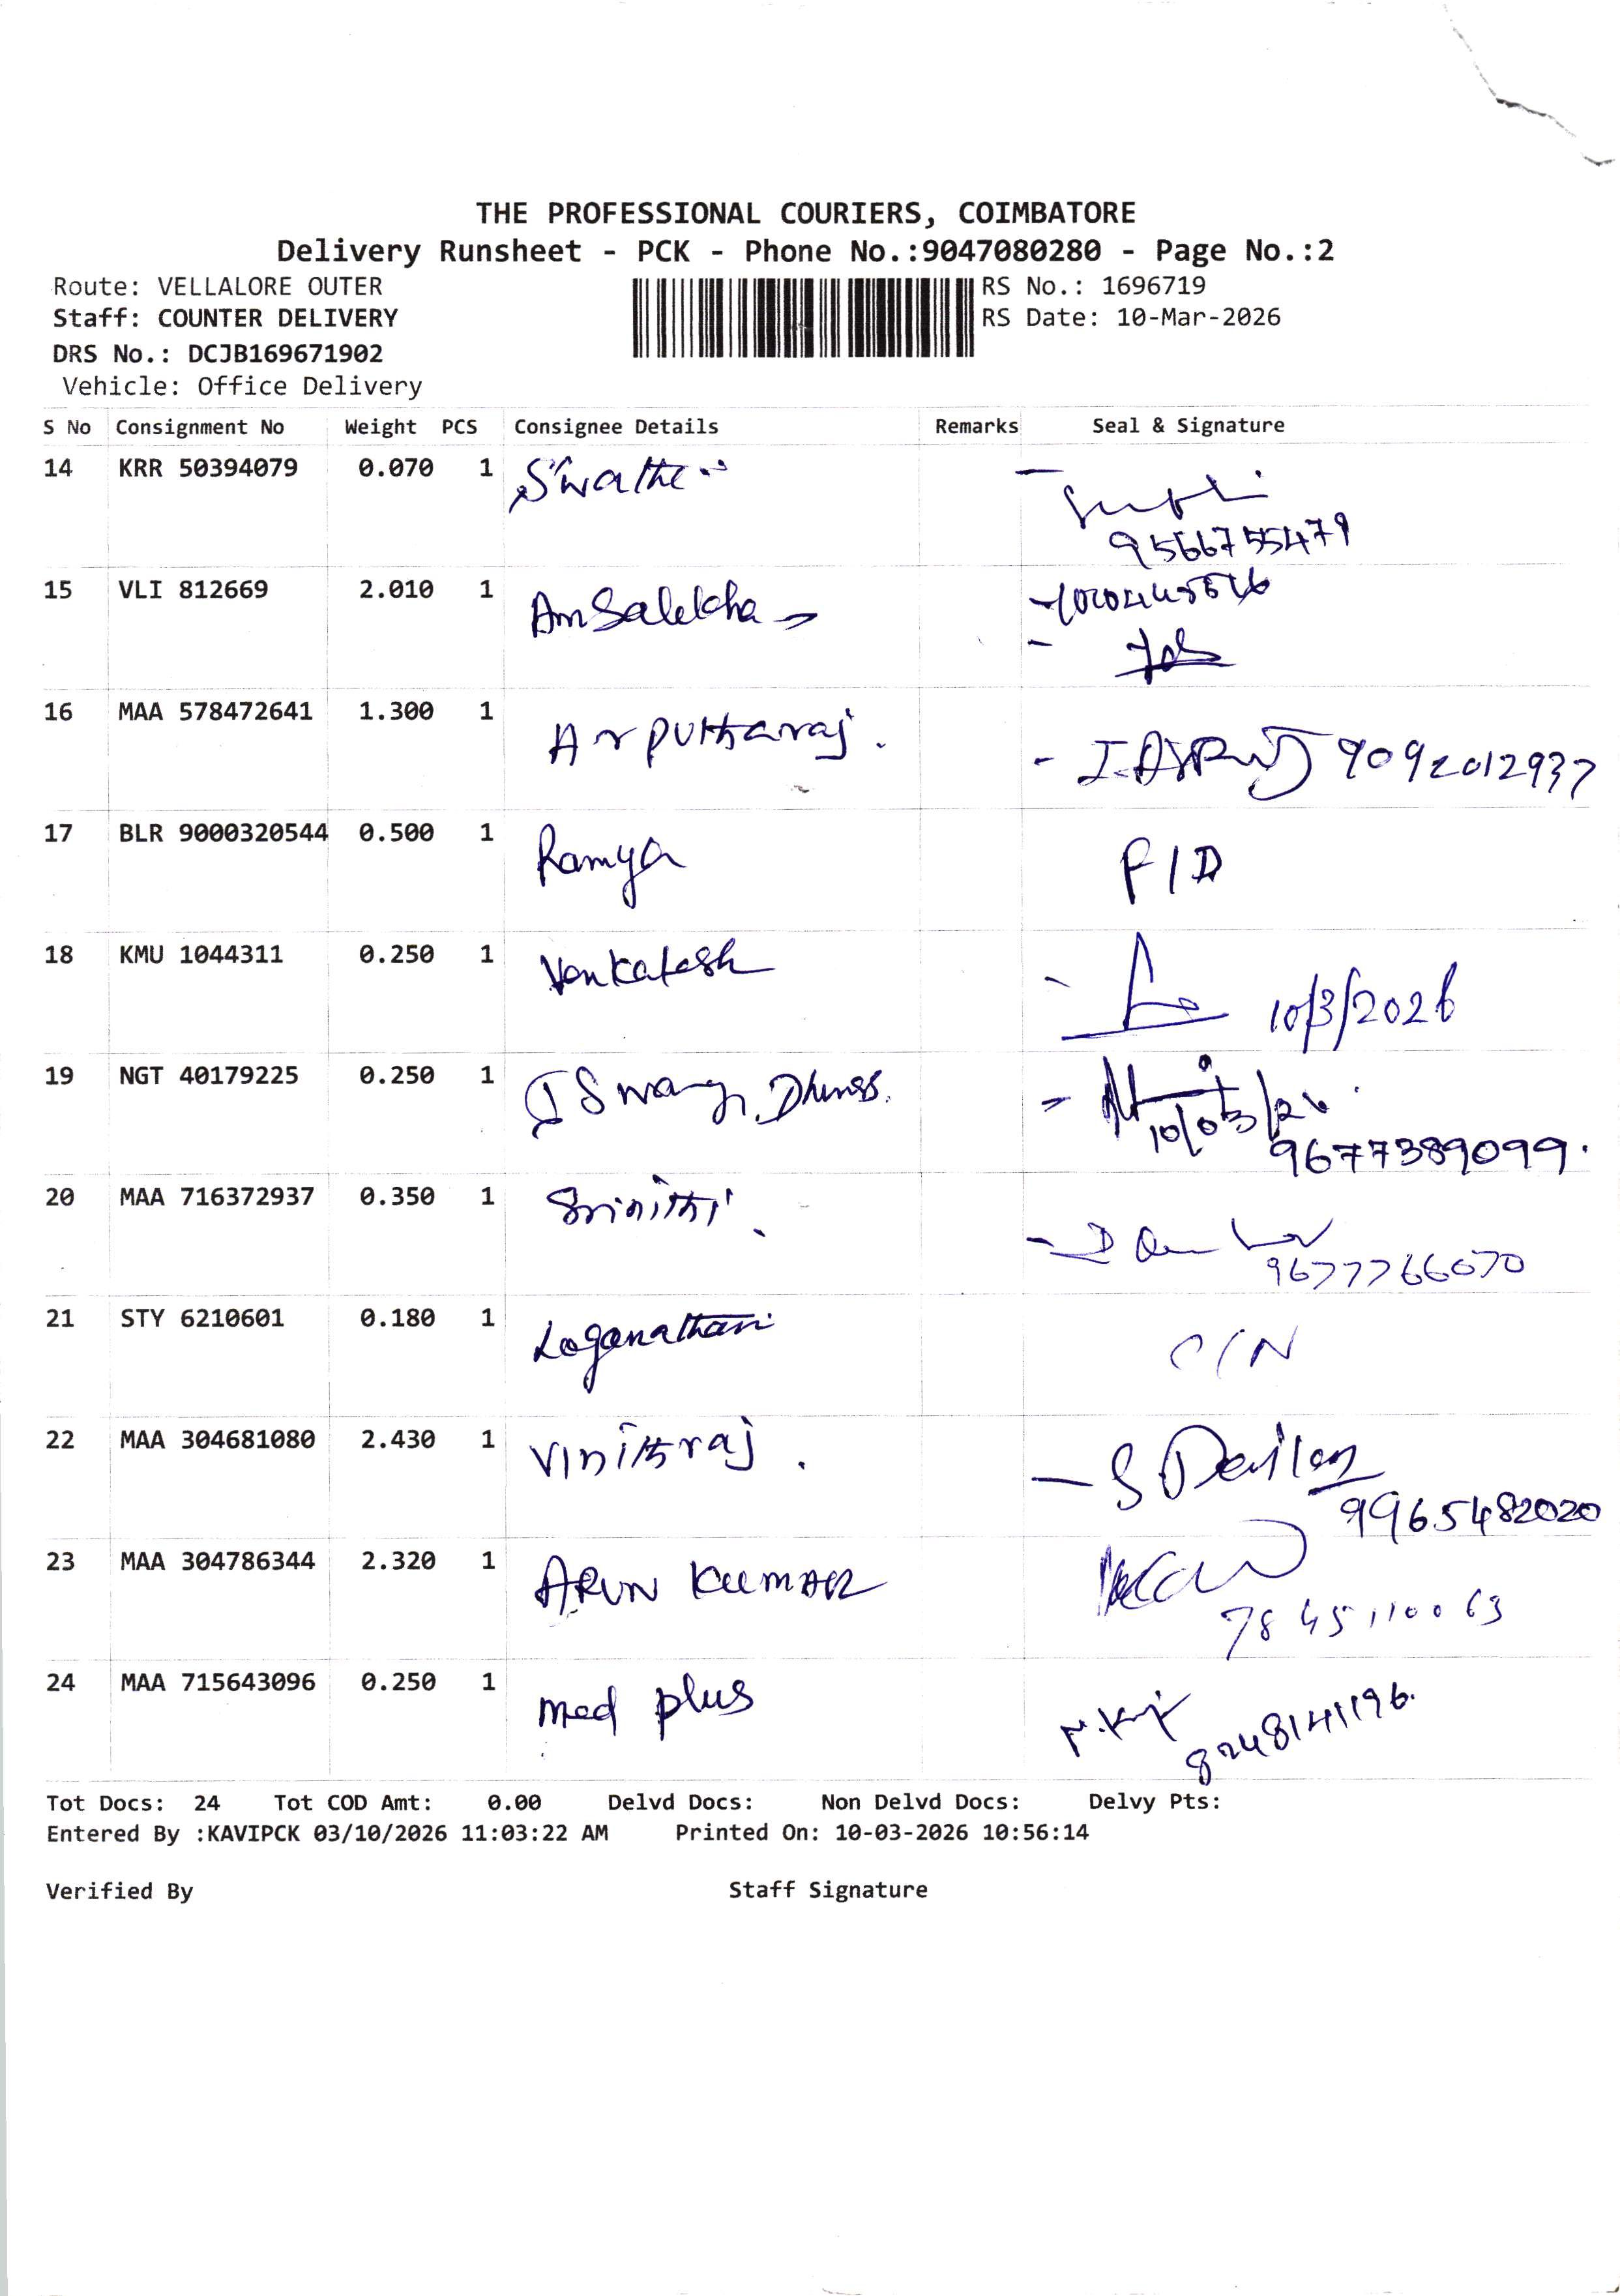 THE PROFESSIONAL COURIERS, COIMBATORE
Delivery Runsheet - PCK - Phone No.:9047080280 - Page No.:2
Route: VELLALORE OUTER
RS No.: 1696719
Staff: COUNTER DELIVERY
RS Date: 10-Mar-2026
DRS No.: DCJB169671902
Vehicle: Office Delivery
S No Consignment No Weight PCS Consignee Details Remarks Seal & Signature
14 KRR 50394079 0.070 1
9566755479
15 VLI 812669 2.010 1
16 MAA 578472641 1.300 1 Arputharaj. 9092012937
17 BLR 9000320544 0.500 1 Ramya
18 KMU 1044311 0.250 1 Venkatesh 10/3/2026
19 NGT 40179225 0.250 1
10/03/26
9677389099.
20 MAA 716372937 0.350 1 Srinithi
9677766070
21 STY 6210601 0.180 1 Loganathan
22 MAA 304681080 2.430 1 Vinithraj.
9965482020
23 MAA 304786344 2.320 1 ARUN KUMAR
7845110063
24 MAA 715643096 0.250 1 med plus
8248141196.
Tot Docs: 24 Tot COD Amt: 0.00 Delvd Docs: Non Delvd Docs: Delvy Pts:
Entered By :KAVIPCK 03/10/2026 11:03:22 AM Printed On: 10-03-2026 10:56:14
Verified By Staff Signature